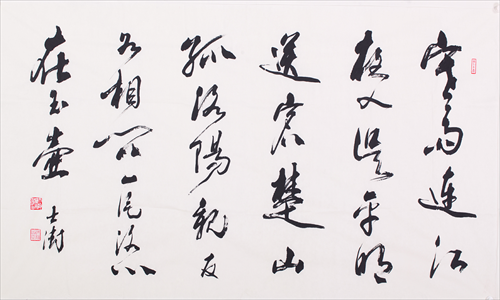 寒雨連江
夜入吳平明
送客楚山
孤洛陽親友
如相問一片冰心
在玉壺
士澍